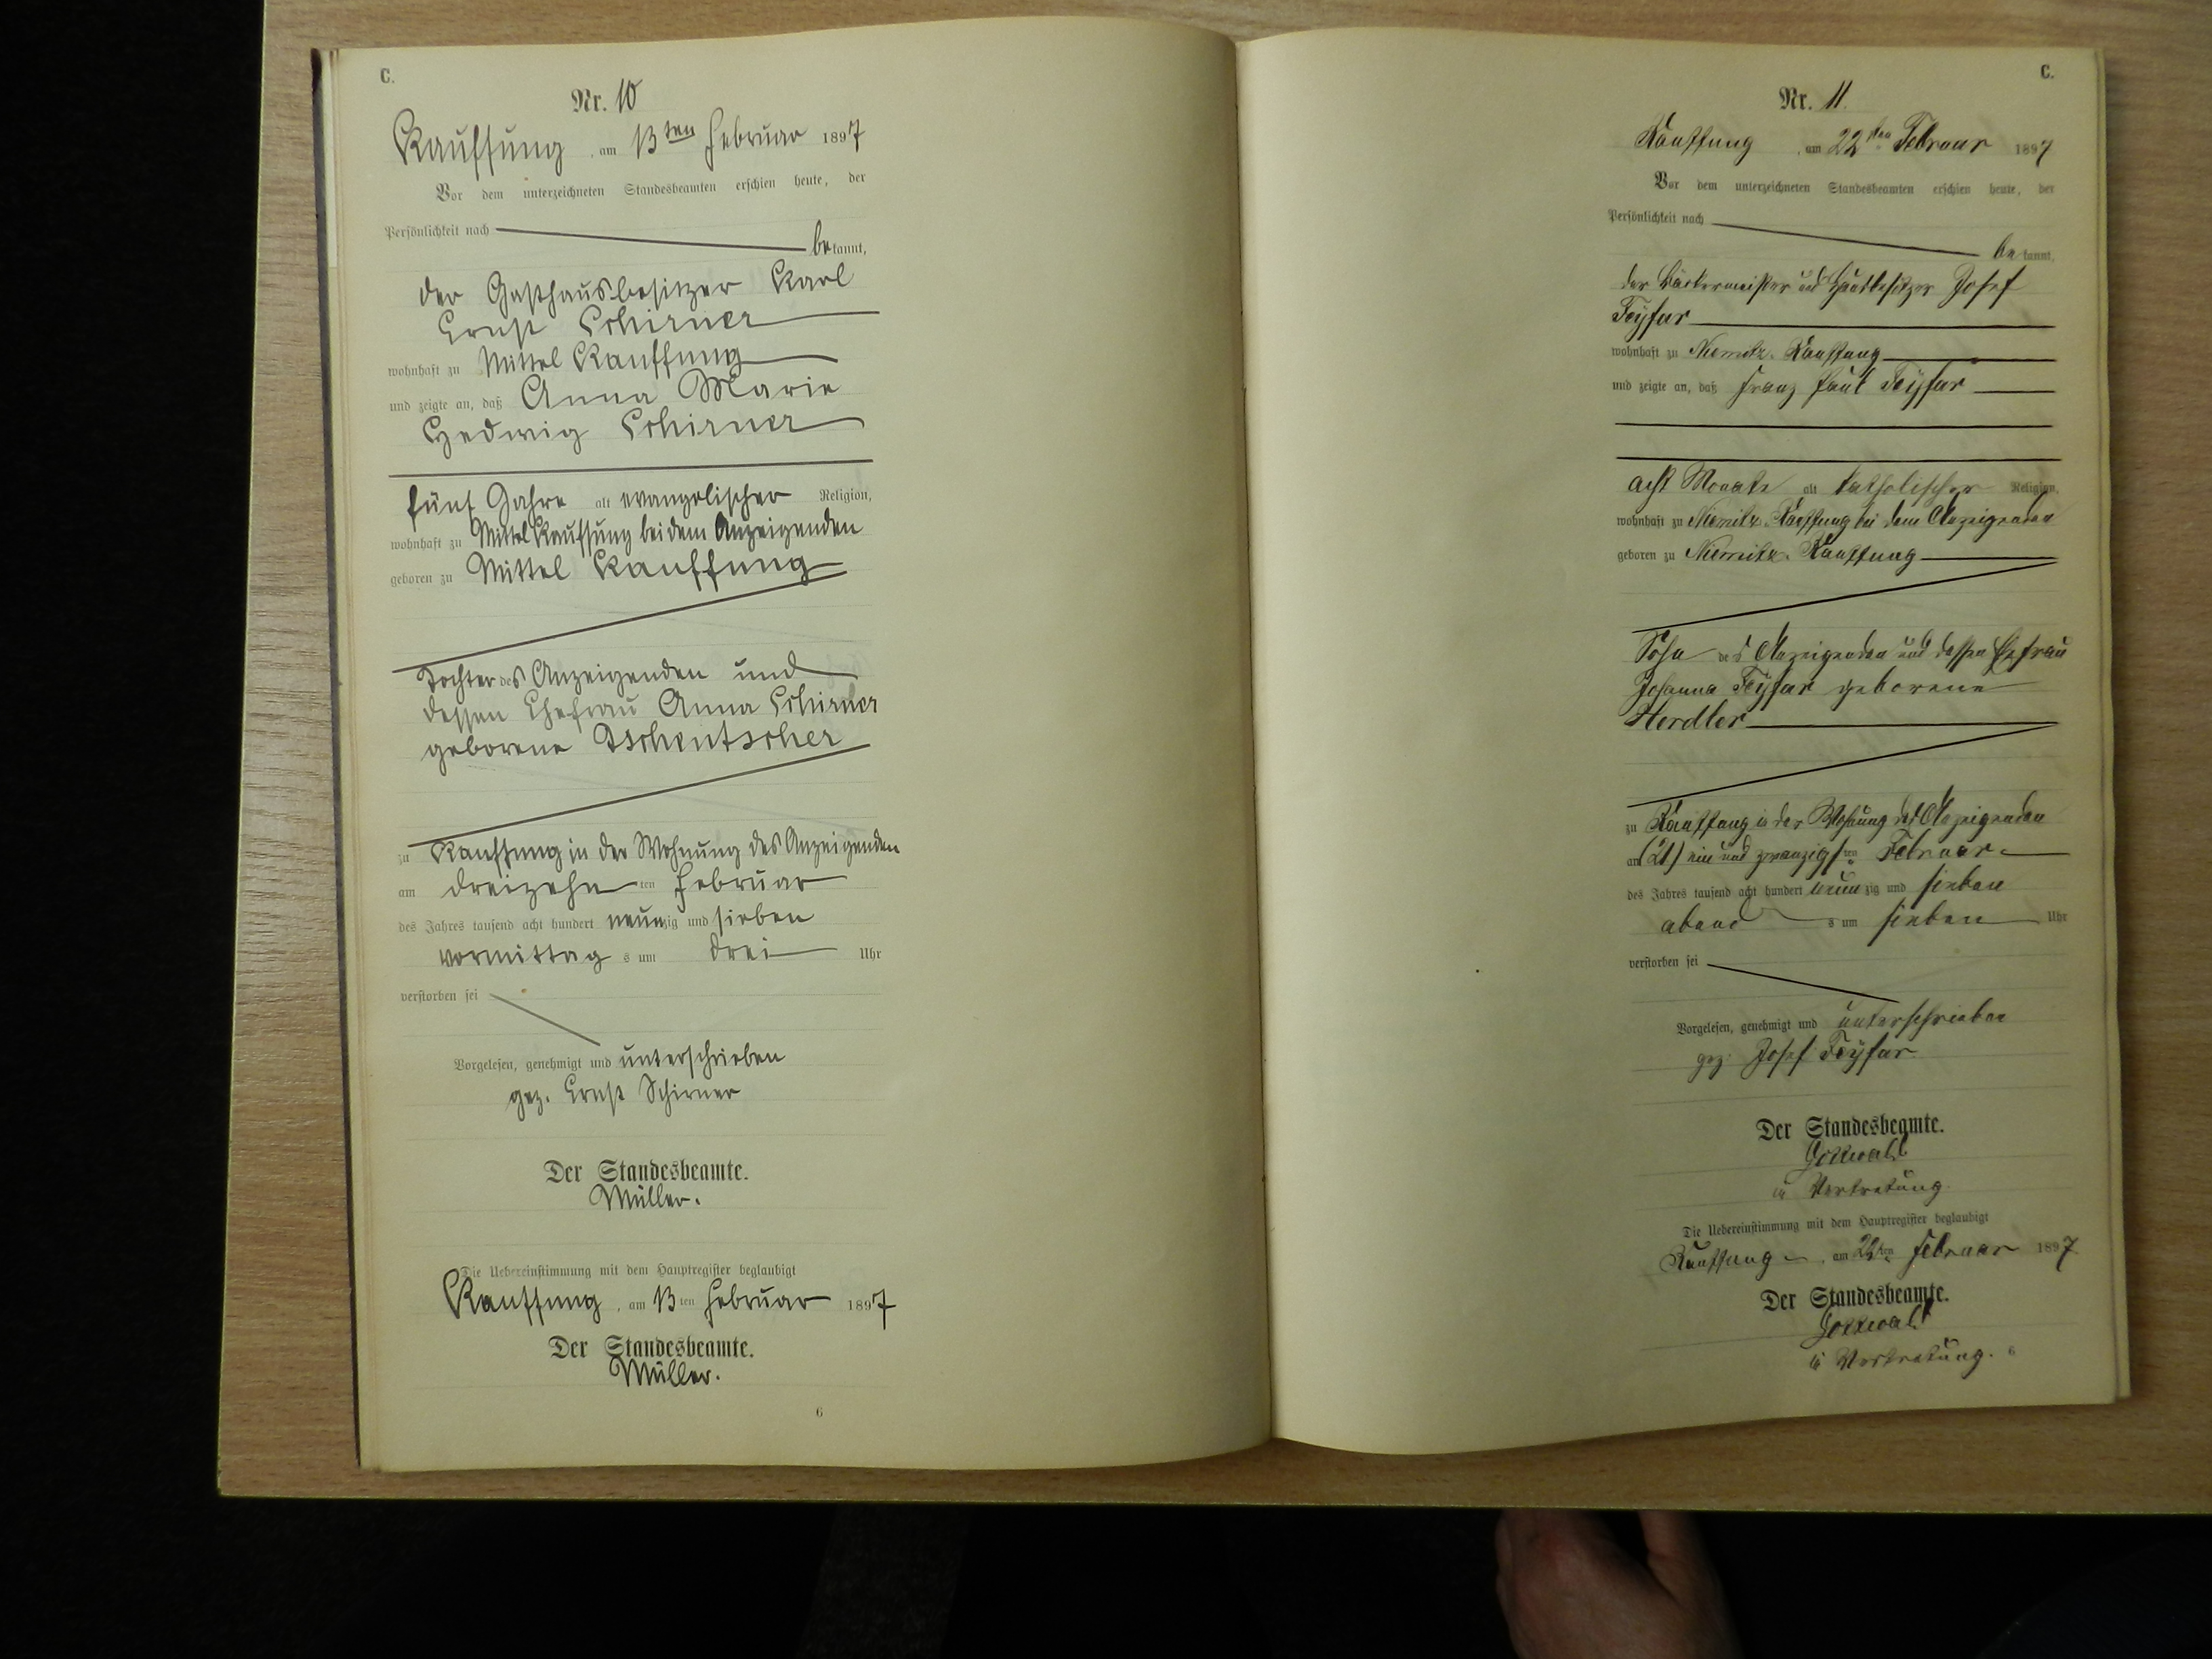 C.
Nr. 10
Kauffung, am 13ten Februar 1897
Vor dem unterzeichneten Standesbeamten erschien heute, der
Persönlichkeit nach
bekannt,
der Gasthausbesitzer Karl
Ernst Schirner
wohnhaft zu Mittel Kauffung
und zeigte an, daß Anna Marie
Hedwig Schirner
fünf Jahre alt evangelischer Religion,
wohnhaft zu Mittel Kauffung bei dem Anzeigenden
geboren zu Mittel Kauffung
Tochter des Anzeigenden und
dessen Ehefrau Anna Schirner
geborene Tschentscher
zu Kauffung in der Wohnung des Anzeigenden
am dreizehnten Februar
des Jahres tausend acht hundert neunzig und sieben
vormittags um drei Uhr
verstorben sei
Vorgelesen, genehmigt und unterschrieben
gez. Ernst Schirner
Der Standesbeamte.
Müller.
Die Uebereinstimmung mit dem Hauptregister beglaubigt
Kauffung, am 13ten Februar 1897
Der Standesbeamte.
Müller.
6
C.
Nr. 11.
Kauffung, am 22ten Februar 1897
Vor dem unterzeichneten Standesbeamten erschien heute, der
Persönlichkeit nach
bekannt,
der Bäckermeister und Hausbesitzer Josef
Teyfar
wohnhaft zu Niemitz-Kauffung
und zeigte an, daß Franz Paul Teyfar
acht Monate alt katholischer Religion,
wohnhaft zu Niemitz-Kauffung bei dem Anzeigenden
geboren zu Niemitz-Kauffung
Sohn des Anzeigenden und dessen Ehefrau
Johanna Teyfar geborene
Herdler
zu Kauffung in der Wohnung des Anzeigenden
am (21) ein und zwanzigsten Februar
des Jahres tausend acht hundert neunzig und sieben
abends um sieben Uhr
verstorben sei
Vorgelesen, genehmigt und unterschrieben
gez. Josef Teyfar
Der Standesbeamte.
in Vertretung
Die Uebereinstimmung mit dem Hauptregister beglaubigt
Kauffung, am 22ten Februar 1897
Der Standesbeamte.
in Vertretung.
6